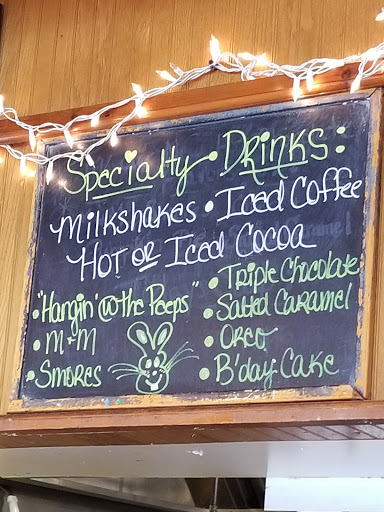 Specialty DRINKS:
Milkshakes • Iced Coffee
Hot or Iced Cocoa
• "Hangin' w/ the Peeps"
• M+M
• Smores
• Triple Chocolate
• Salted Caramel
• Oreo
• B'day Cake